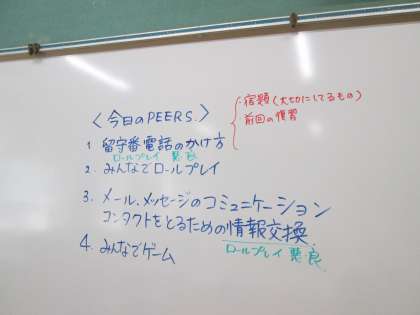 〈今日のPEERS.〉
・宿題(大切にしてるもの)
前回の復習
1. 留守番電話のかけ方
ロールプレイ 悪・良
2. みんなでロールプレイ
3. メール、メッセージのコミュニケーション
コンタクトをとるための情報交換
ロールプレイ 悪・良
4. みんなでゲーム